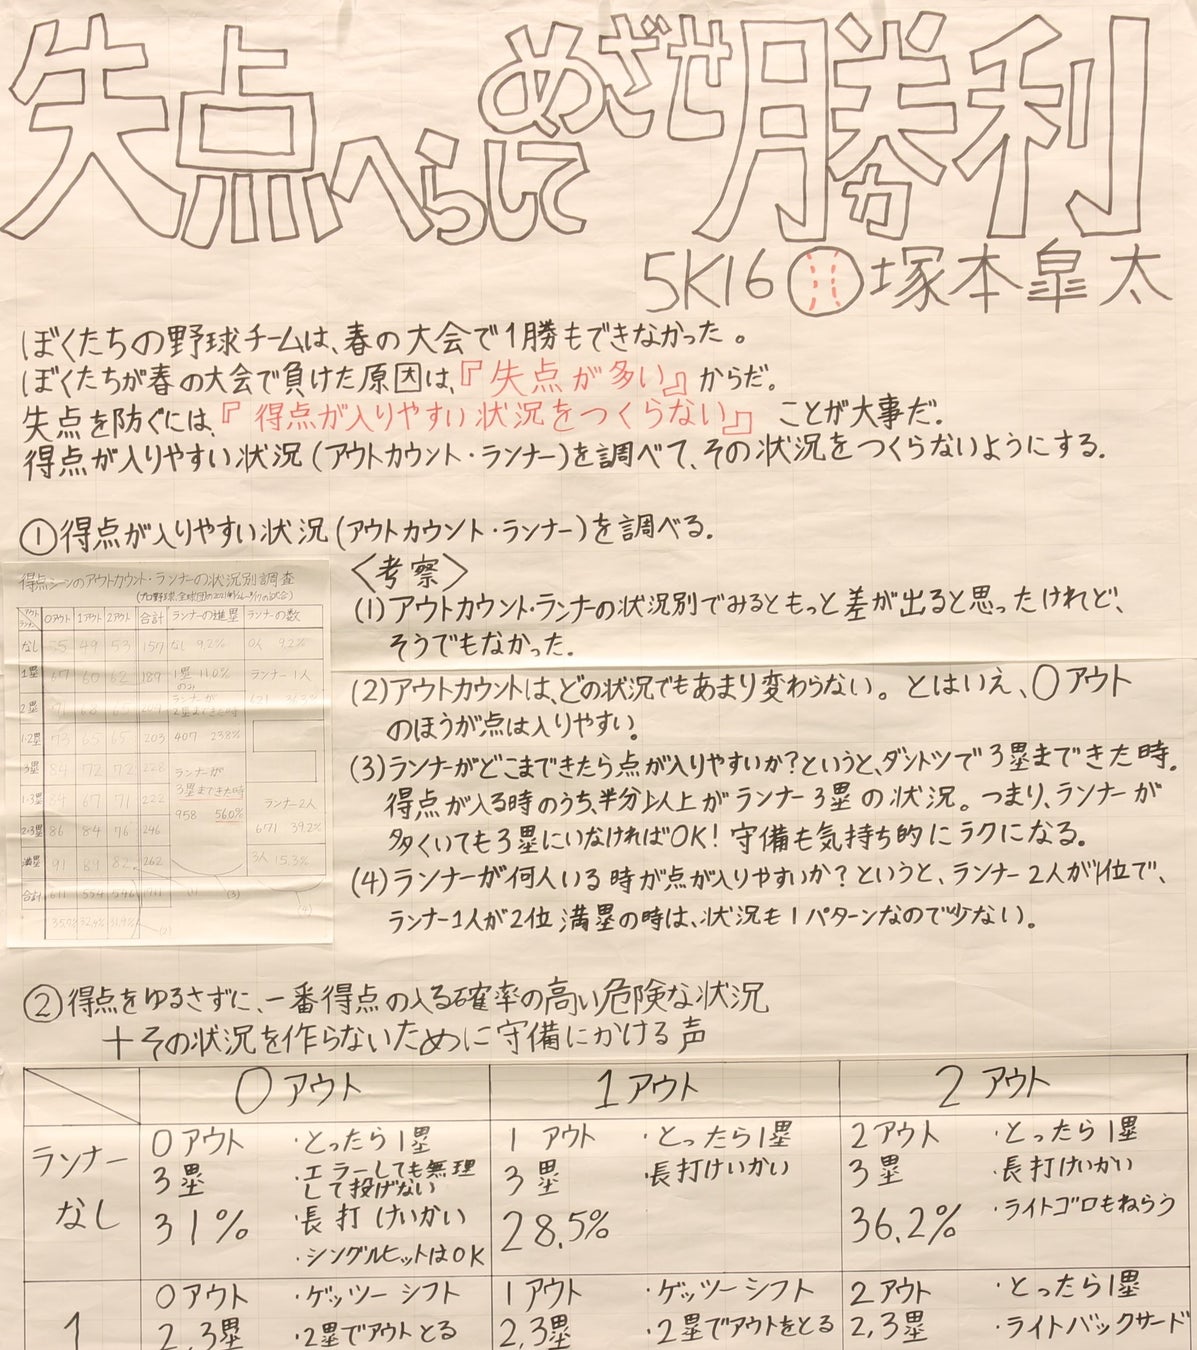 失点へらして めざせ勝利
5K16 塚本皐太
ぼくたちの野球チームは、春の大会で1勝もできなかった。
ぼくたちが春の大会で負けた原因は、『失点が多い』からだ。
失点を防ぐには、『得点が入りやすい状況をつくらない』ことが大事だ。
得点が入りやすい状況(アウトカウント・ランナー)を調べて、その状況をつくらないようにする。
①得点が入りやすい状況(アウトカウント・ランナー)を調べる。
得点シーンのアウトカウント・ランナーの状況別調査
0アウト 1アウト 2アウト 合計 ランナーの進塁 ランナーの数
なし 55 49 53 157 なし 9.2% 0人 9.2%
1塁 67 60 62 189 1塁のみ 11.0% ランナー1人
2塁
1・2塁 73 65 65 203 407 23.8%
3塁 84 72 72 228 ランナーが
1・3塁 84 67 71 222 3塁まできた時 ランナー2人
2・3塁 86 84 76 246 958 56.0% 671 39.2%
満塁 91 89 82 262 3人 15.3%
合計 611
〈考察〉
(1)アウトカウント・ランナの状況別でみるともっと差が出ると思ったけれど、
そうでもなかった。
(2)アウトカウントは、どの状況でもあまり変わらない。とはいえ、0アウト
のほうが点は入りやすい。
(3)ランナーがどこまできたら点が入りやすいか?というと、ダントツで3塁まできた時。
得点が入る時のうち、半分以上がランナー3塁の状況。つまり、ランナーが
多くいても3塁にいなければOK!守備も気持ち的にラクになる。
(4)ランナーが何人いる時が点が入りやすいか?というと、ランナー2人が1位で、
ランナー1人が2位 満塁の時は、状況も1パターンなので少ない。
②得点をゆるさずに、一番得点の入る確率の高い危険な状況
+その状況を作らないために守備にかける声
0アウト 1アウト 2アウト
ランナー
なし
0アウト
3塁
31%
・とったら1塁
・エラーしても無理
して投げない
・長打けいかい
・シングルヒットはOK
1アウト
3塁
28.5%
・とったら1塁
・長打けいかい
2アウト
3塁
36.2%
・とったら1塁
・長打けいかい
・ライトゴロもねらう
1
0アウト
2,3塁
・ゲッツーシフト
・2塁でアウトとる
1アウト
2,3塁
・ゲッツーシフト
・2塁でアウトをとる
2アウト
2,3塁
・とったら1塁
・ライトバックサード